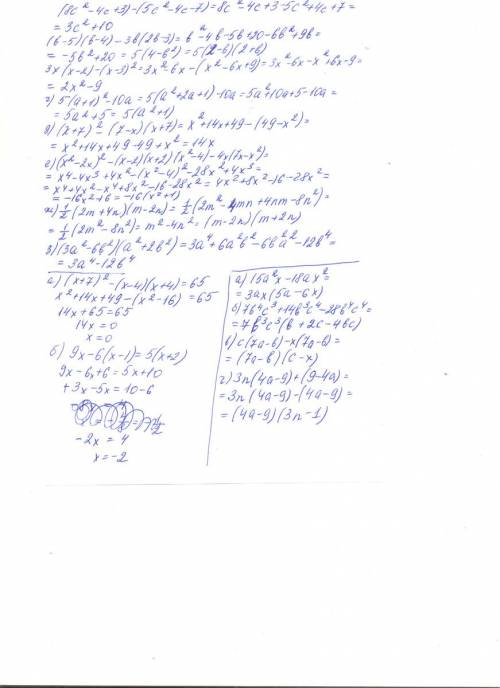 (8c²-4c+3)-(5c²-4c-7)=8c²-4c+3-5c²+4c+7=
=3c²+10
(b-5)(b-4)-3b(2b-3)=b²-4b-5b+20-6b²+9b=
=-5b²+20=5(4-b²)=5(2-b)(2+b)
3x(x-2)-(x-3)²=3x²-6x-(x²-6x+9)=3x²-6x-x²+6x-9=
=2x²-9
г) 5(a+1)²-10a=5(a²+2a+1)-10a=5a²+10a+5-10a=
=5a²+5=5(a²+1)
д) (x+7)²-(7-x)(x+7)=x²+14x+49-(49-x²)=
=x²+14x+49-49+x²=14x
е) (x²-2x)²-(x-2)(x+2)(x²-4)-4x(7x-x²)=
=x⁴-4x³+4x²-(x²-4)²-28x²+4x³=
=x⁴+4x²-x⁴+8x²-16-28x²=4x²+8x²-16-28x²=
=-16x²+6=-16(x²+1)
ж) 1/2(2m+4n)(m-2n)=1/2(2m²-4mn+4nm-8n²)=
=1/2(2m²-8n²)=m²-4n²=(m-2n)(m+2n)
з) (3a²-6b²)(a²+2b²)=3a⁴+6a²b²-6b²a²-12b⁴=
=3a⁴-12b⁴
а) (x+7)²-(x-4)(x+4)=65
x²+14x+49-(x²-16)=65
14x+65=65
14x=0
x=0
б) 9x-6(x-1)=5(x+2)
9x-6x+6=5x+10
+3x-5x=10-6
-2x=4
x=-2
а) 15a²x-18ax²=
=3ax(5a-6x)
б) 7b⁴c³+14b³c⁴-28b⁴c⁴=
=7b³c³(b+2c-4bc)
в) c(7a-b)-x(7a-b)=
=(7a-b)(c-x)
г) 3n(4a-9)+(9-4a)=
=3n(4a-9)-(4a-9)=
=(4a-9)(3n-1)